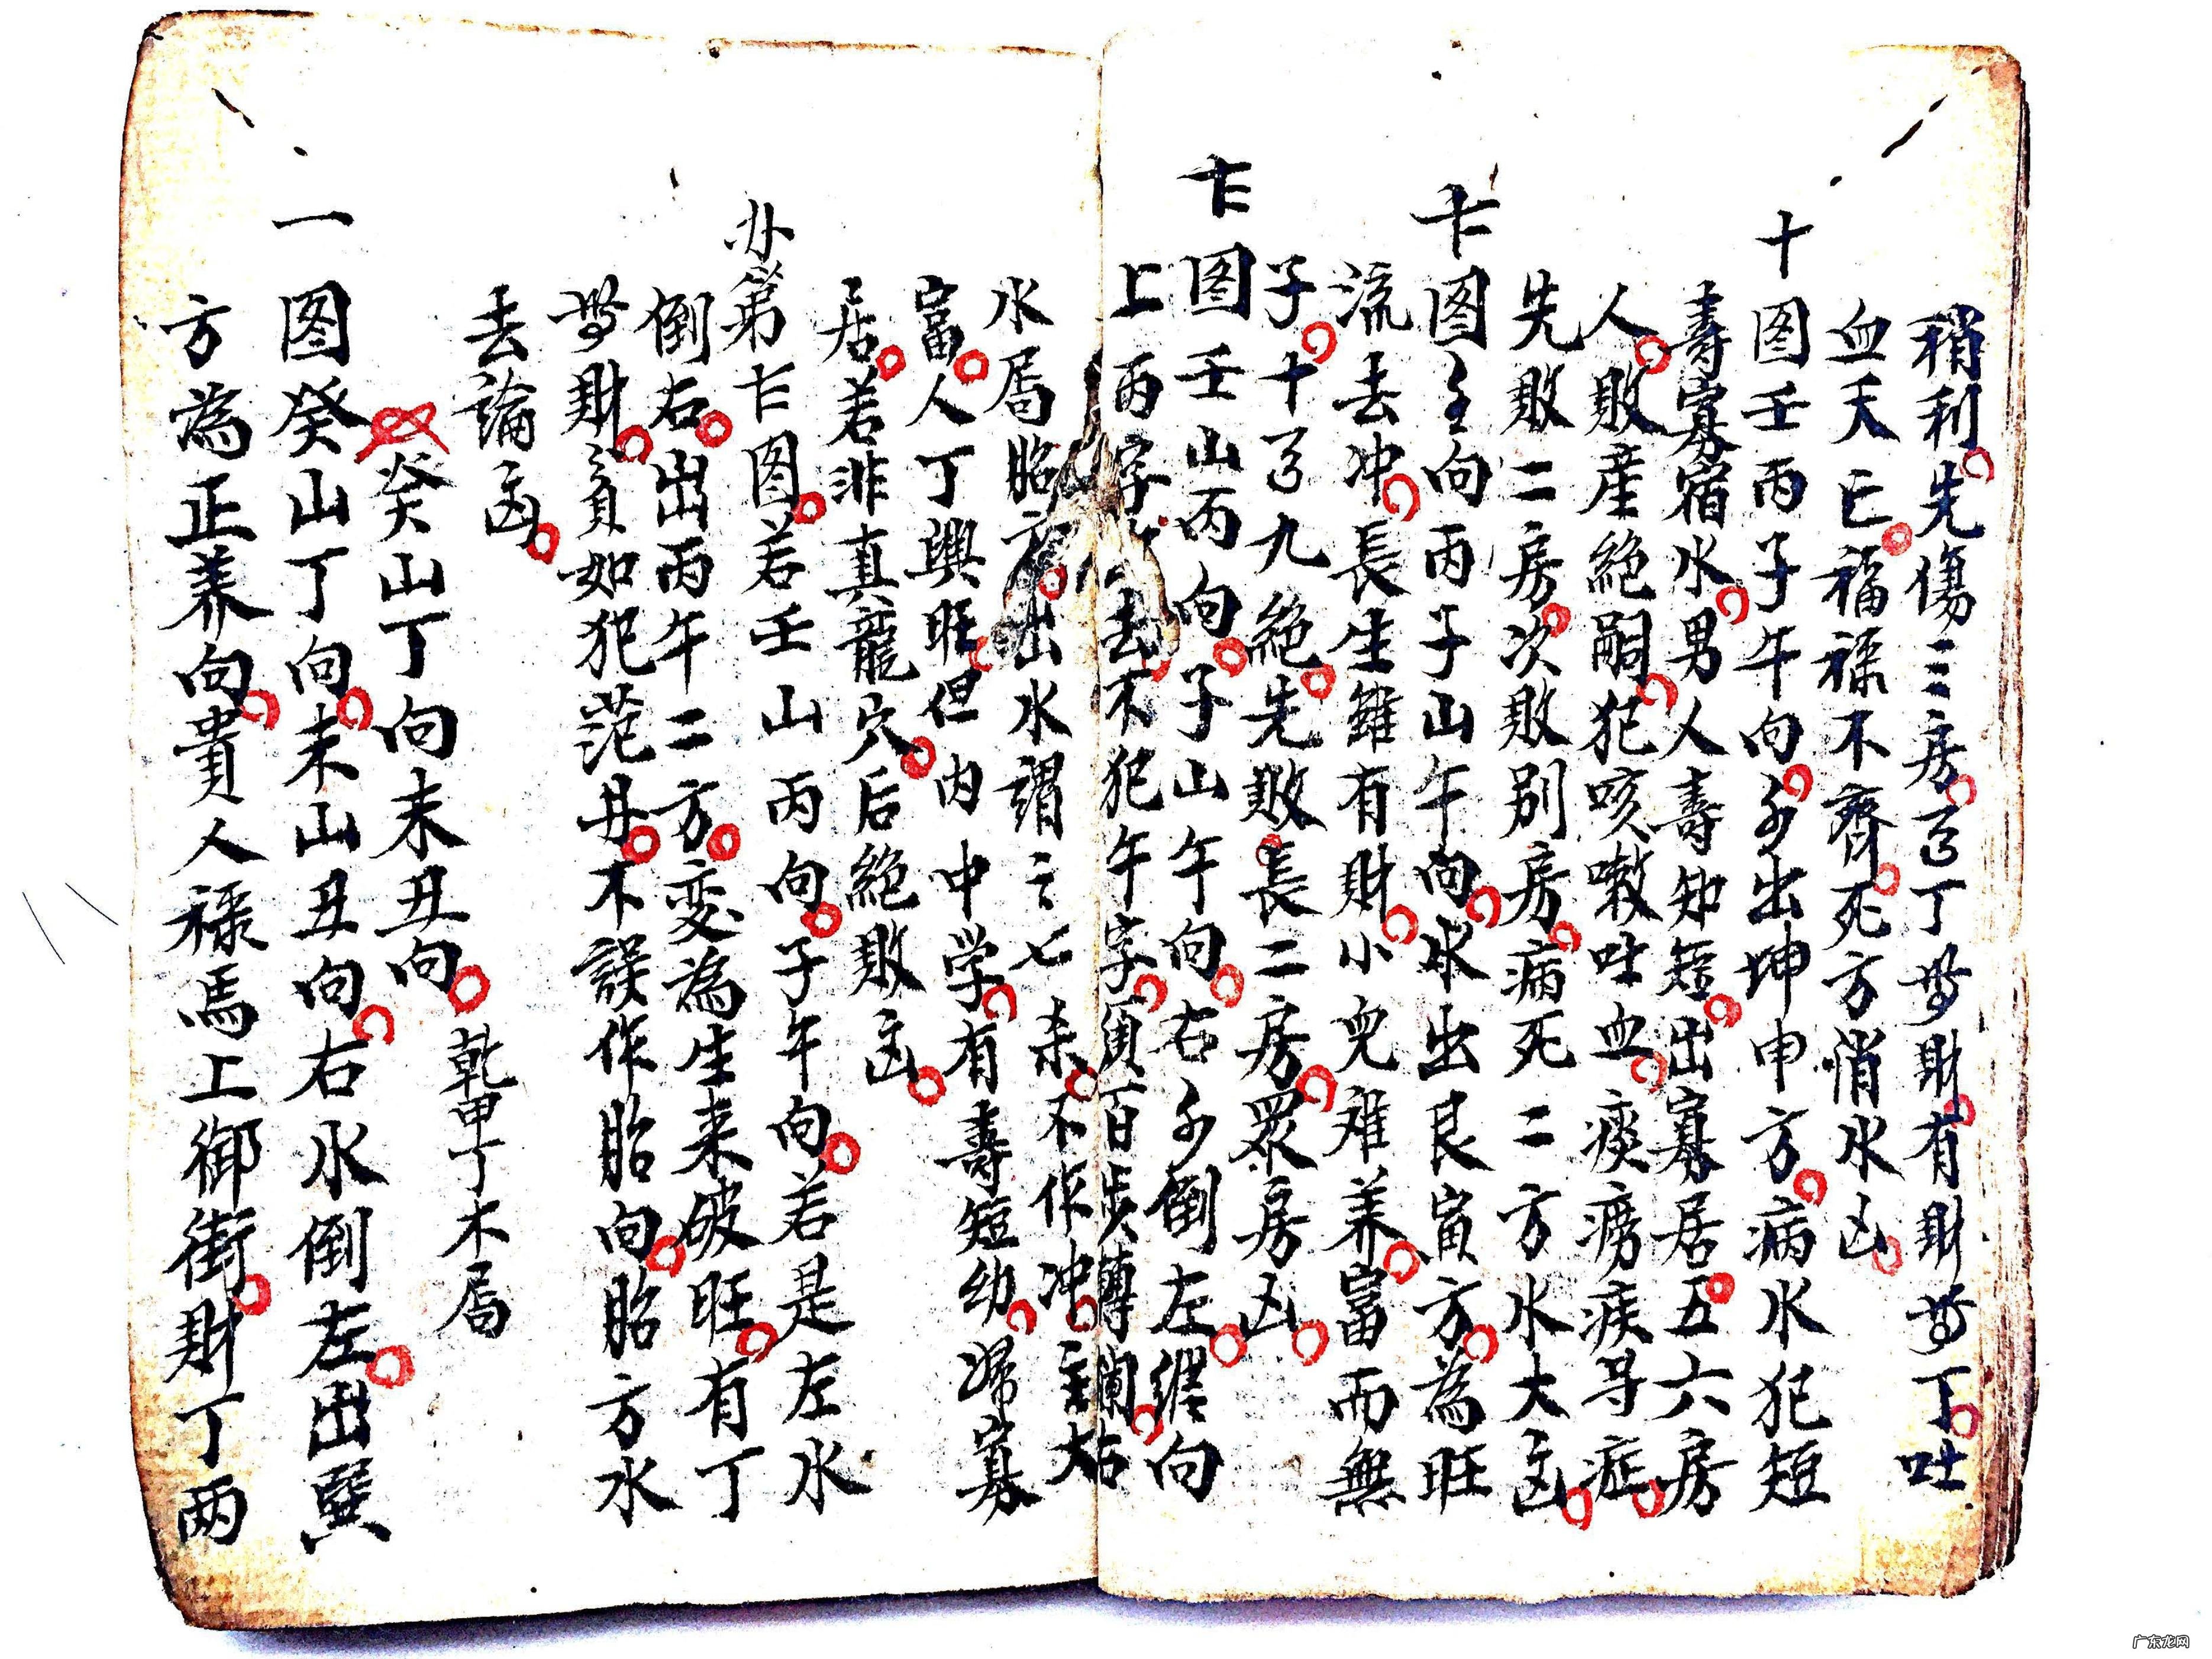 稍利先傷三房丁財有財丁吐
血夭亡福禄不齊死方悄水凶
十图壬丙子午向出坤申方病水犯短
壽寡宿水男人壽知短出寡居五六房
人敗産絶嗣犯咳嗽吐血痰癆疾㝵症
先敗二房次敗别房病死二方水大凶
图主向丙子山午向水出艮寅方為旺
流去冲長生雖有財小兒难养富而無
子十九絶先敗長二房眾房凶
图壬山丙向子山午向右倒左纒向
上丙字去不犯午字須百步轉欄右
水局胎方出水謂之七杀不作冲主大
富人丁興旺但内中学有壽短幼归寡
居若非真龍穴后絶敗凶
办第图若壬山丙向子午向若是左水
倒右出丙午二方变為生来破旺有丁
財貧如犯范丹不誤作胎向胎方水
去論凶
癸山丁向末丑向 乾甲丁木局
一图癸山丁向末山丑向右水倒左出巽
方為正养向貴人禄馬上御街財丁两
广东龙网